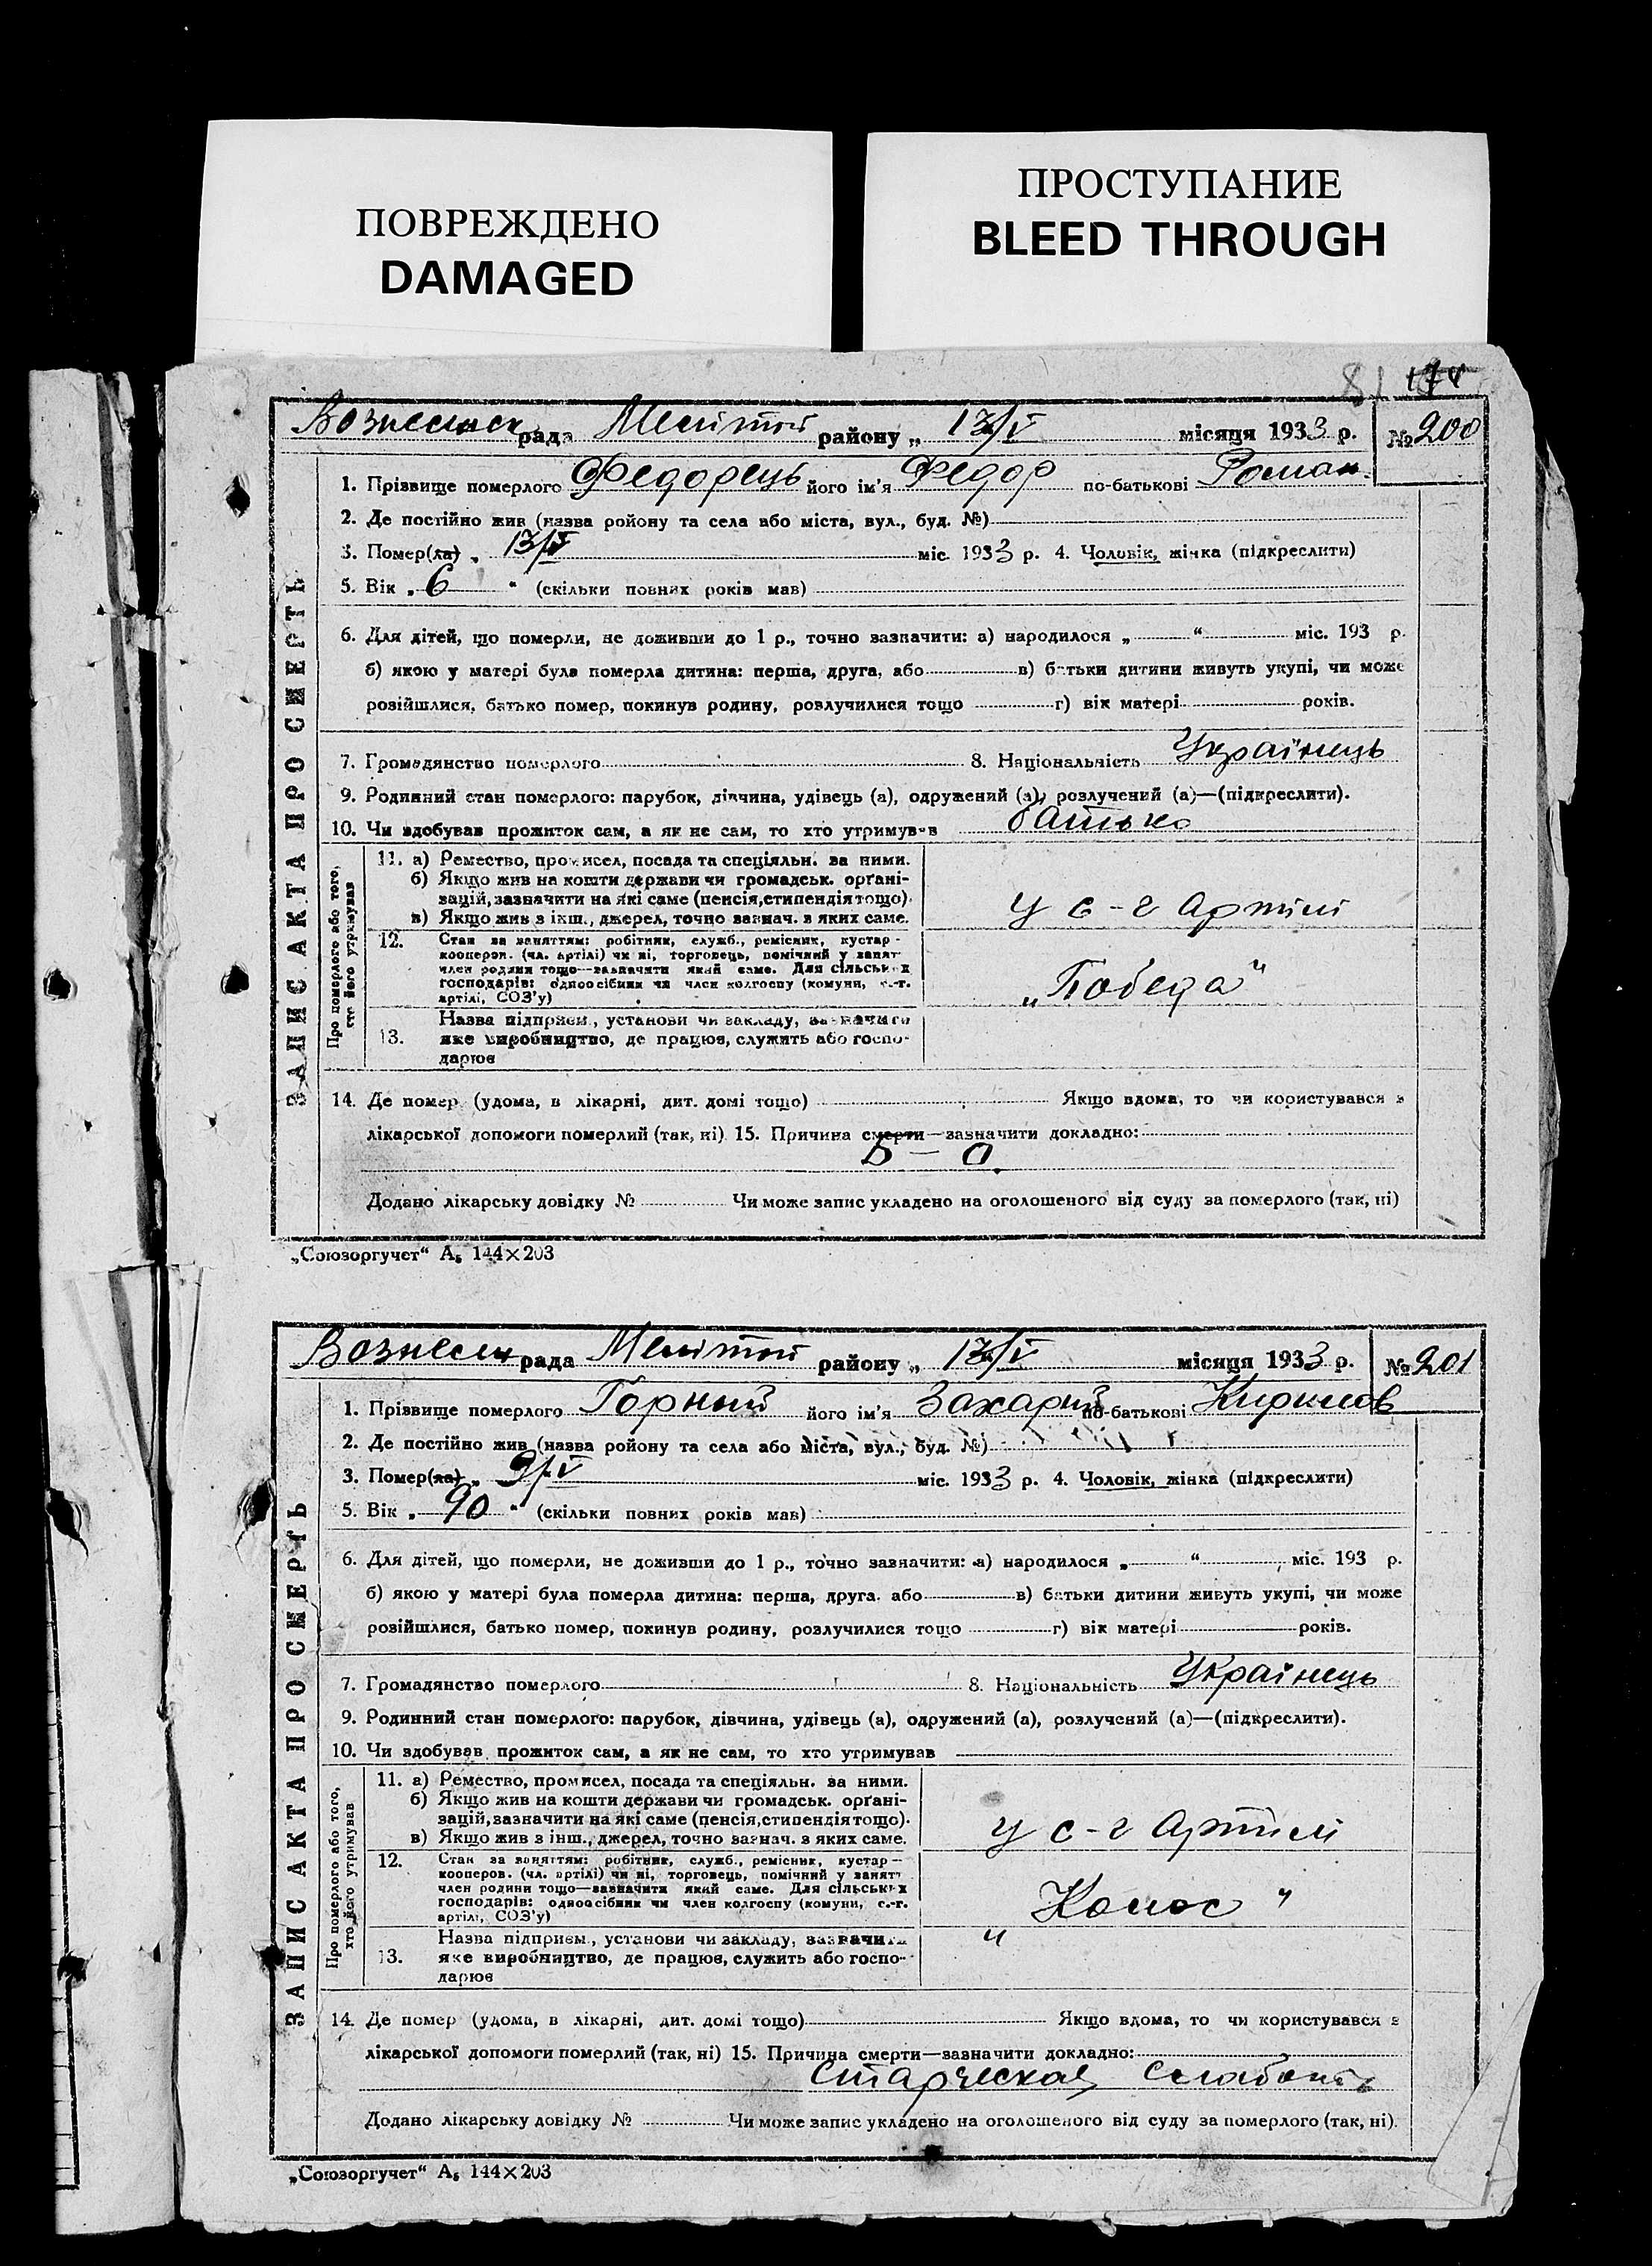 ПОВРЕЖДЕНО
DAMAGED
ПРОСТУПАНИЕ
BLEED THROUGH
81
Вознесенск рада Меліттой району „ 13/V місяця 1933 р. № 200
ЗАПИС АКТА ПРО СМЕРТЬ
1. Прізвище померлого Федорець його ім'я Федор по-батькові Роман.
2. Де постійно жив (назва ройону та села або міста, вул., буд. №)
3. Помер(ла) „ 13/V міс. 1933 р. 4. Чоловік, жінка (підкреслити)
5. Вік „ 6 “ (скільки повних років мав)
6. Для дітей, що померли, не доживши до 1 р., точно зазначити: а) народилося „ “ міс. 193 р.
б) якою у матері була померла дитина: перша, друга, або в) батьки дитини живуть укупі, чи може
розійшлися, батько помер, покинув родину, розлучилися тощо г) вік матері років.
7. Громадянство померлого 8. Національність Українець
9. Родинний стан померлого: парубок, дівчина, удівець (а), одружений (а), розлучений (а)—(підкреслити).
10. Чи здобував прожиток сам, а як не сам, то хто утримував батько
Про померлого або того, хто його утримував
11. а) Ремество, промисел, посада та спеціяльн. за ними.
б) Якщо жив на кошти держави чи громадськ. орґані-
зацій, зазначити на які саме (пенсія, стипендія тощо).
в) Якщо жив з інш., джерел, точно зазнач. з яких саме.
у с-г Артілі
12. Стан за заняттям: робітник, служб., ремісник, кустар-
кооперов. (чл. артілі) чи ні, торговець, помічний у занят.
член родини тощо—зазначити який саме. Для сільських
господарів: одноосібник чи член колгоспу (комуни, с.-г.
артілі, СОЗ'у)
„Победа“
13. Назва підприєм., установи чи закладу, зазначити
яке виробництво, де працює, служить або госпо-
дарює
14. Де помер (удома, в лікарні, дит. домі тощо) Якщо вдома, то чи користувався з
лікарської допомоги померлий (так, ні) 15. Причина смерти—зазначити докладно:
Б — О.
Додано лікарську довідку № Чи може запис укладено на оголошеного від суду за померлого (так, ні)
„Союзоргучет“ А₅ 144×203
Вознесен рада Меліттой району „ 13/V місяця 1933 р. № 201
ЗАПИС АКТА ПРО СМЕРТЬ
1. Прізвище померлого Горный його ім'я Захарий по-батькові Кирилов
2. Де постійно жив (назва ройону та села або міста, вул., буд. №)
3. Помер(ла) „ 9/V міс. 1933 р. 4. Чоловік, жінка (підкреслити)
5. Вік „ 90 “ (скільки повних років мав)
6. Для дітей, що померли, не доживши до 1 р., точно зазначити: а) народилося „ “ міс. 193 р.
б) якою у матері була померла дитина: перша, друга, або в) батьки дитини живуть укупі, чи може
розійшлися, батько помер, покинув родину, розлучилися тощо г) вік матері років.
7. Громадянство померлого 8. Національність Українець
9. Родинний стан померлого: парубок, дівчина, удівець (а), одружений (а), розлучений (а)—(підкреслити).
10. Чи здобував прожиток сам, а як не сам, то хто утримував
Про померлого або того, хто його утримував
11. а) Ремество, промисел, посада та спеціяльн. за ними.
б) Якщо жив на кошти держави чи громадськ. орґані-
зацій, зазначити на які саме (пенсія, стипендія тощо).
в) Якщо жив з інш., джерел, точно зазнач. з яких саме.
у с-г Артілі
12. Стан за заняттям: робітник, служб., ремісник, кустар-
кооперов. (чл. артілі) чи ні, торговець, помічний у занятт.
член родини тощо—зазначити який саме. Для сільських
господарів: одноосібник чи член колгоспу (комуни, с.-г.
артілі, СОЗ'у)
„Колос“
13. Назва підприєм., установи чи закладу, зазначити
яке виробництво, де працює, служить або госпо-
дарює
14. Де помер (удома, в лікарні, дит. домі тощо) Якщо вдома, то чи користувався з
лікарської допомоги померлий (так, ні) 15. Причина смерти—зазначити докладно:
Старческая слабость
Додано лікарську довідку № Чи може запис укладено на оголошеного від суду за померлого (так, ні).
„Союзоргучет“ А₅ 144×203